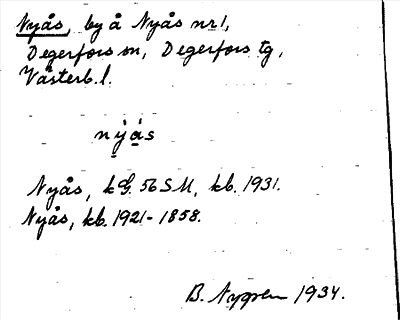 Nyås, by å Nyås nr 1,
Degerfors sn, Degerfors tg,
Västerb. l.
nyås
Nyås, kG. 56 SU, kb. 1931.
Nyås, kb. 1921-1858.
B. Nygren 1934.